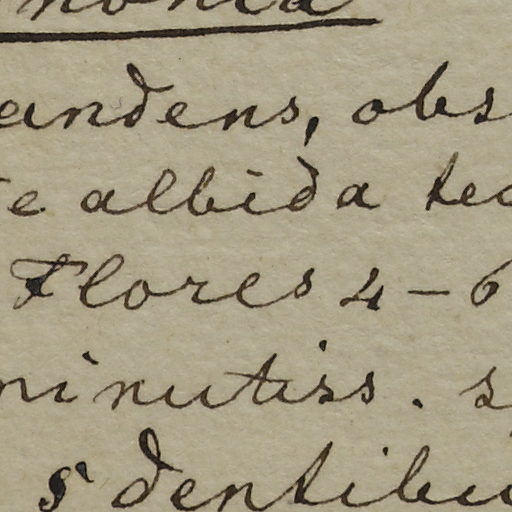 andens, obs
e albida tec
Flores 4-6
minutiss. s
5 dentibu